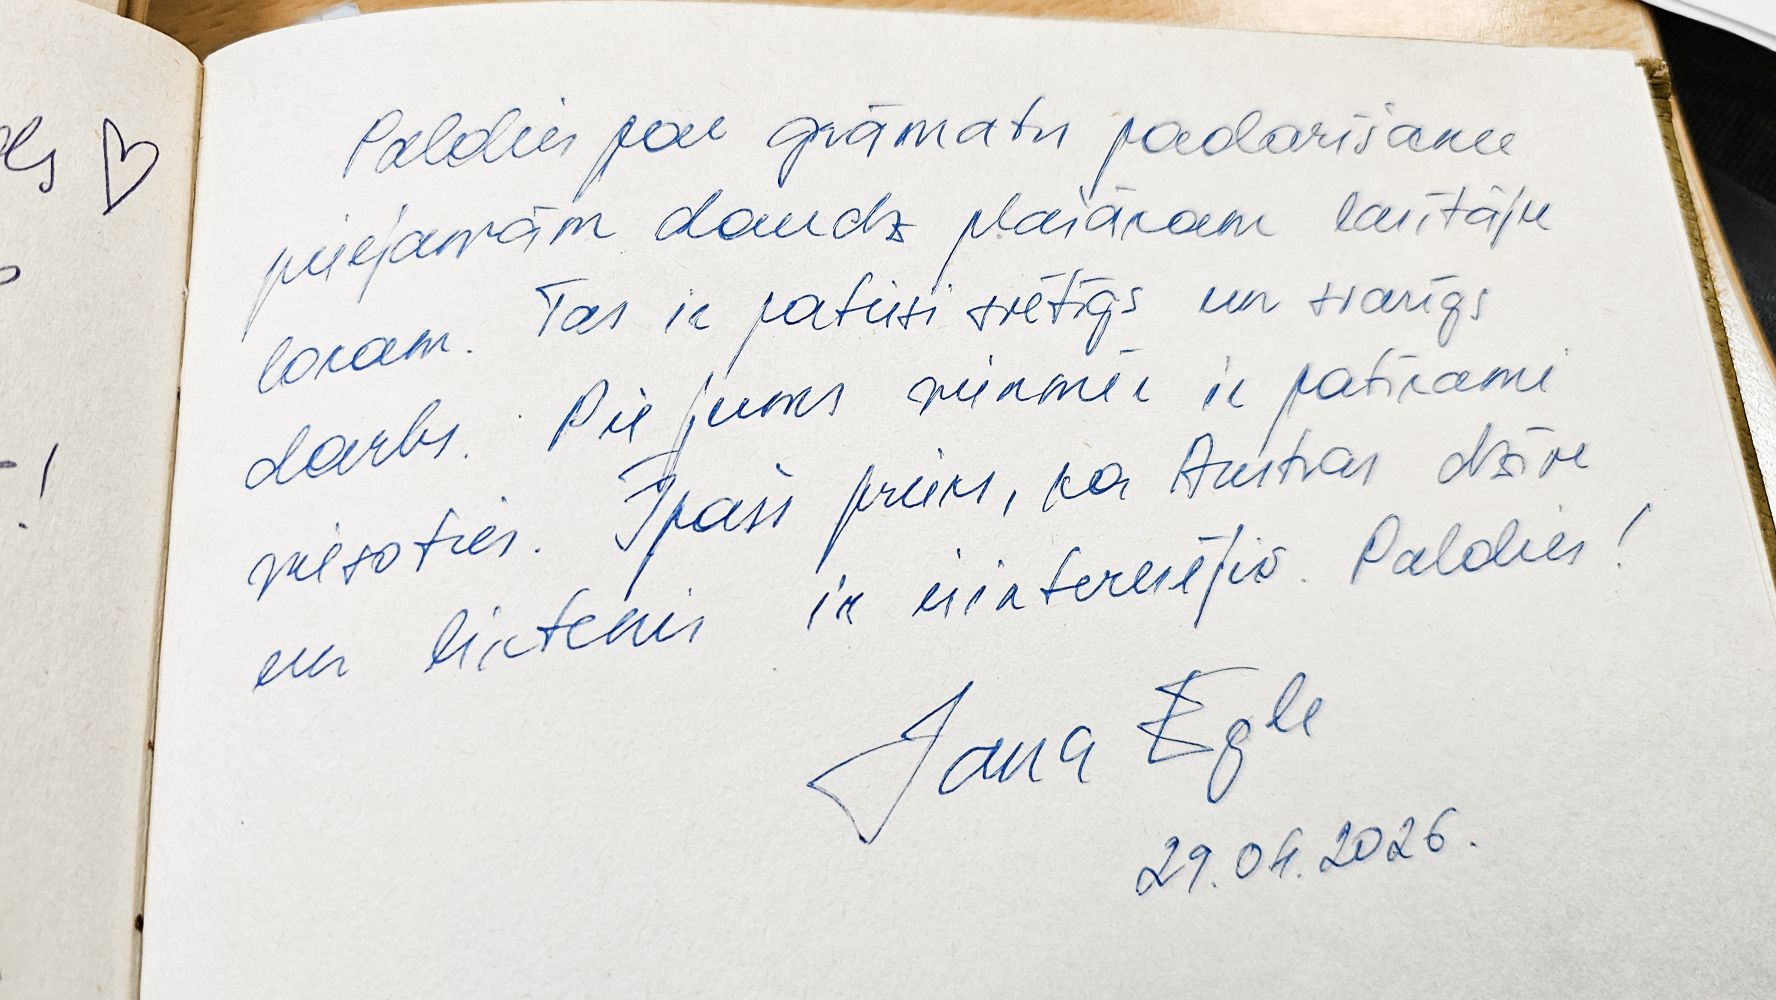 Paldies par grāmatu padarīšanu
pieejamām daudz plašākam lasītāju
lokam. Tas ir patiesi svētīgs un svarīgs
darbs. Pie jums vienmēr ir patīkami
viesoties. Īpašs prieks, ka Austras dzīve
un liktenis ir ieinteresējis. Paldies!
Jana Egle
29.04.2026.